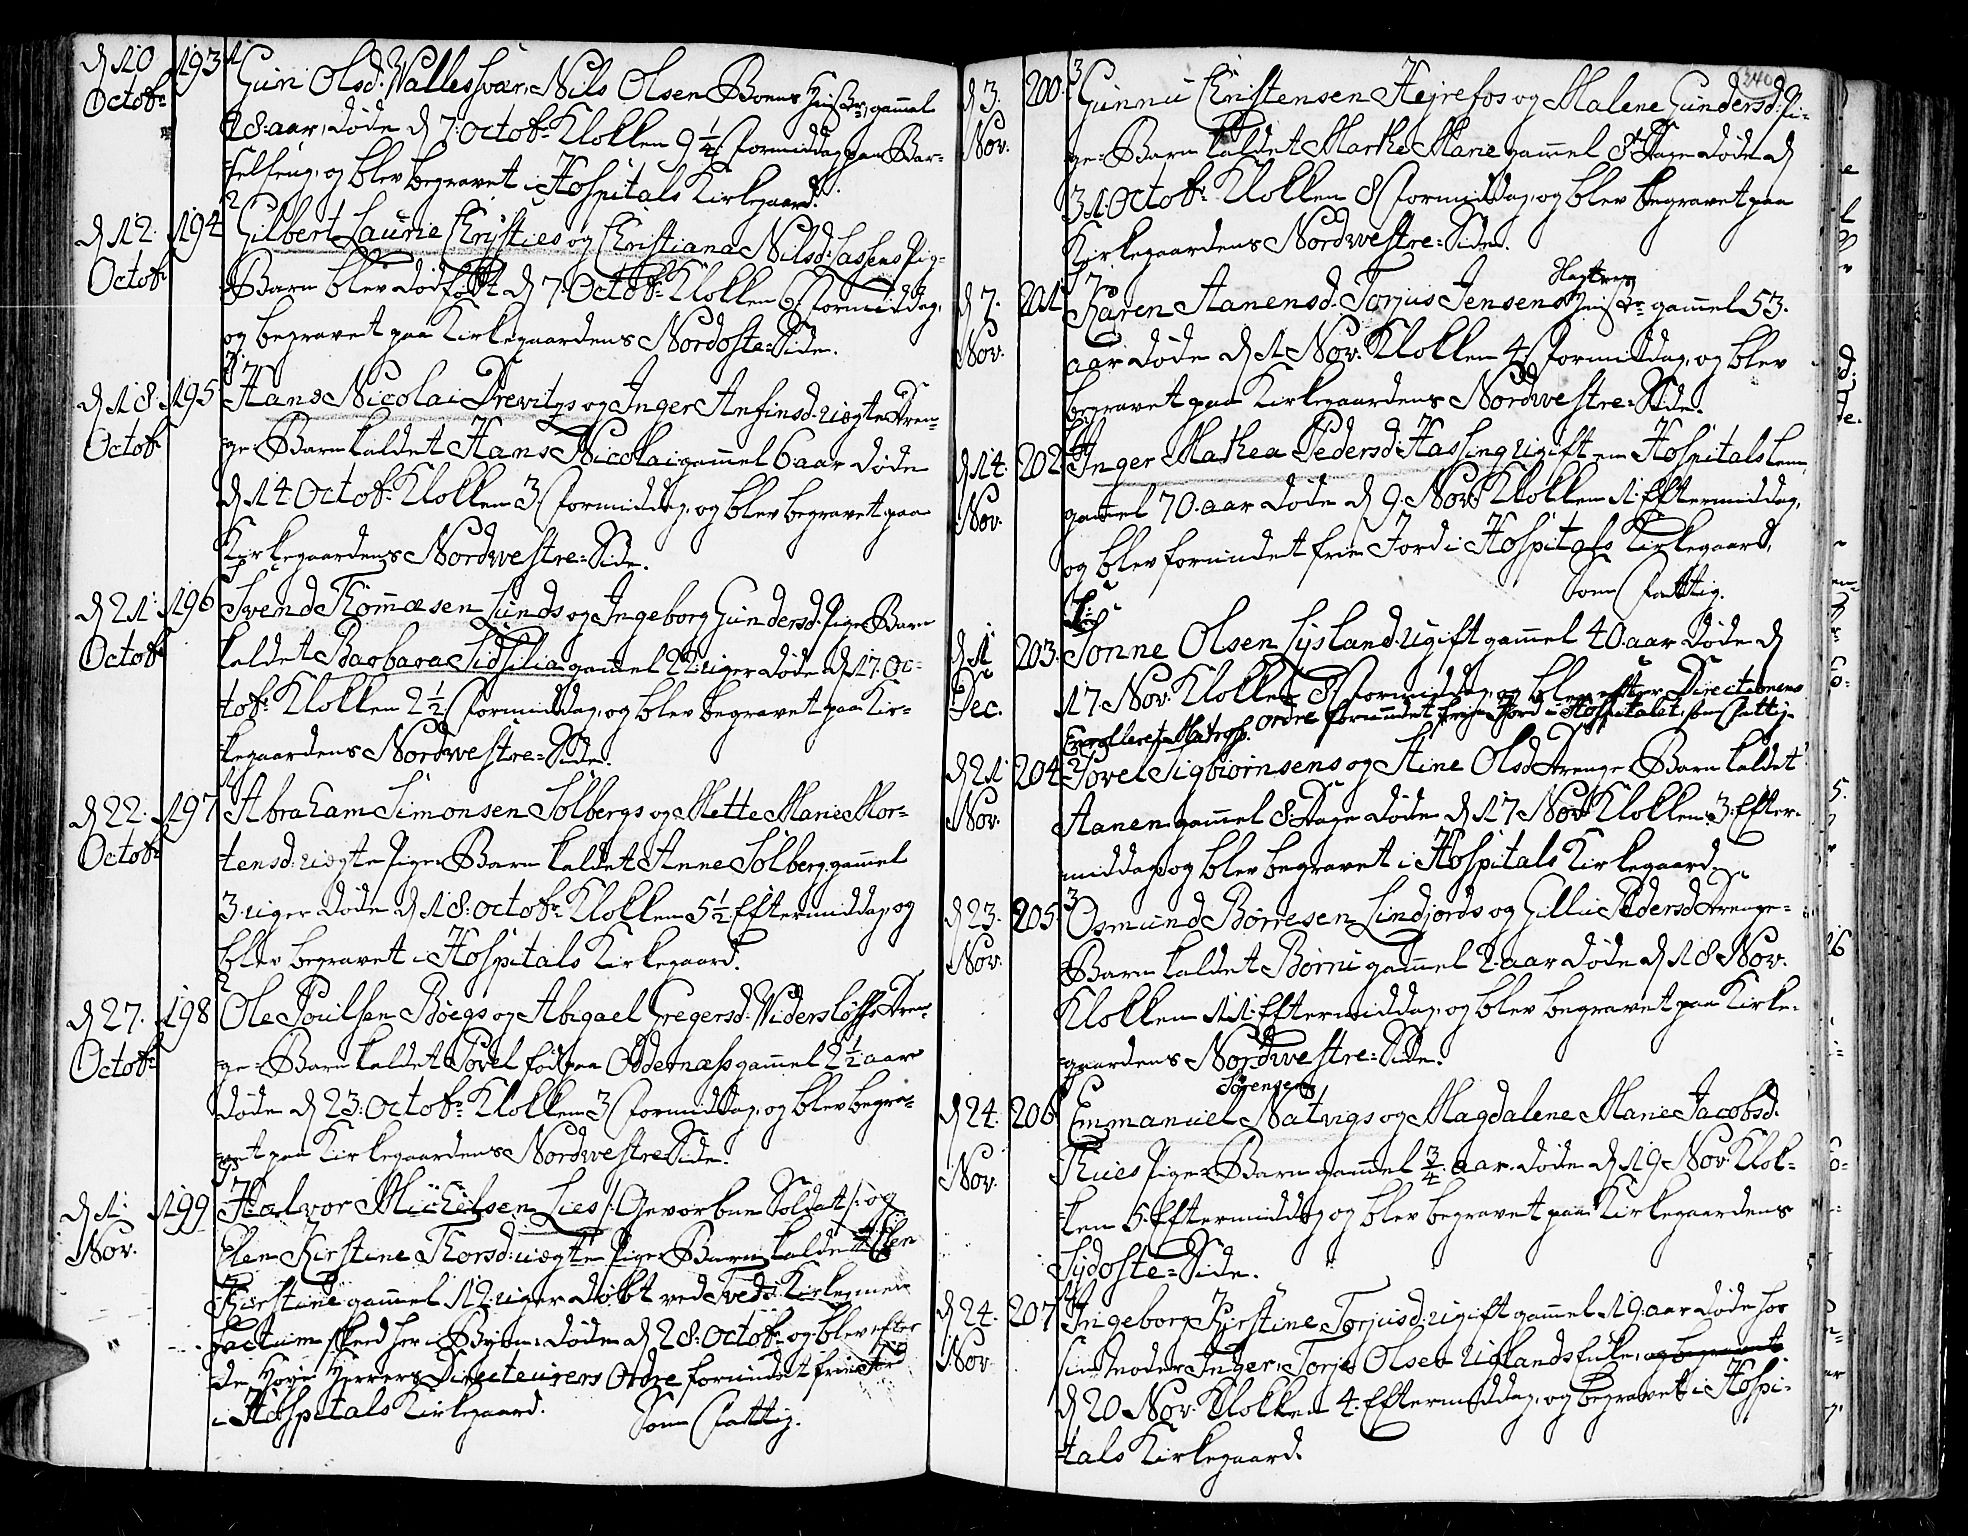 d 10 Octobr 193 1
Guri Olsd: Vallessvær, Nils Olsen Boens Hustr, gammel
28 aar, døde d 7 Octobr Klokken 9 1/4 Formiddag paa Bar-
selseng, og blev begravet i Hospitals Kirkegaard.
d 12. Octobr 194 2
Gilbert Laurie Christies og Christiana Nilsd: Lassens Pig-
Barn blev dødfødt d 7. Octobr Klokken 6 Formiddag,
og begravet paa Kirkegaardens Nordoste-Side.
d 18. Octobr 195 3
Hans Nicolai Drevitzs og Inger Anfinsd: uægte Dren-
ge-Barn kaldet Hans Nicolai gammel 6 aar døde
d 14 Octobr Klokken 3 Formiddag, og blev begravet paa
Kirkegaardens Nordwestre-Side.
d 21. Octobr 196
Svend Thomæsen Lunds og Ingeborg Gundersd: Pige Barn
kaldet Barbara Sidsilia gammel 22 uger døde d 17. Oc-
tobr Klokken 2 1/2 Formiddag, og blev begravet paa Kir-
kegaardens Nordwestre-Side.
d 22. Octobr 197
Abraham Simonsen Solbergs og Mette Marie Mor-
tensd: uægte Pige-Barn kaldet Anne Solberg gammel
3 uger døde d 18. Octobr Klokken 5 1/2 Eftermiddag, og
blev begravet i Hospitals Kirkegaard.
d 27. Octobr 198 2
Ole Poulsen Bøegs og Abigael Gregersd: Vidersløffs Dren-
ge-Barn kaldet Povel fød paa Oddernæss gammel 2 1/2 aar
døde d 23. Octobr Klokken 3 Formiddag, og blev begra-
vet paa Kirkegaardens Nordwestre Side.
d 1. Nov. 199
Halvor Michelsen Lies /: Gevorben Soldat :/ og
Elen Kirstine Thorsd: uægte Pige-Barn kaldet Elen
Kirstine gammel 12 uger døbt ved Tveds Kirke men
factum skeed her i Byen, døde d 28. Octobr og blev efter
de Høye Herrers Directeurers Ordre forundet frie Jord
i Hospitals Kirkegaard. Som Fattig.
340
d 3. Nov. 200. 3
Gunnu Christensen Hejrefos og Malene Gundersd: Pi-
ge-Barn kaldet Marthe Marie gammel 8 Dage døde d
31. Octobr Klokken 8 Formiddag, og blev begravet paa
Kirkegaardens Nordwestre-Side.
d 7. Nov. 201
Karen Aanensd: Torjus Jensens Hustr gammel 53.
aar døde d 1 Nov. Klokken 4 Formiddag, og blev
begravet paa Kirkegaardens Nordwestre-Side.
d 14. Nov. 202
Inger Mathea Pedersd: Hassing ugift en Hospitals Lem,
gammel 70 aar døde d 9. Nov. Klokken 1. Eftermiddag,
og blev forundet frie Jord i Hospitals Kirkegaard,
Som Fattig.
d 1 Dec. 203.
Tønne Olsen Lysland ugift gammel 40 aar døde d
17 Nov. Klokken 8 Formiddag, og blev efter Directionens
Enrolleret Matros. Ordre forundet frie Jord i Hospitalet, som Fattig
d 21 Nov. 204 2
Povel Sigbiørnsens og Stine Olsd Drenge-Barn kaldet
Aanen gammel 8 Dage døde d 17 Nov. Klokken 3. Efter-
middag, og blev begravet i Hospitals Kirkegaard.
d 23. Nov. 205 3
Osmund Børresen Lindjords og Gillu Pedersd: Drenge-
Barn kaldet Børni gammel 2 aar døde d 18 Nov.
Klokken 11. Eftermiddag, og blev begravet paa Kirke-
gaardens Nordwestre-Side.
Sørensen
d 24. Nov. 206
Emmanuel Natvigs og Magdalene Marie Jacobsd:
Thues Pige-Barn gammel 3/4 aar døde d 19 Nov. Klok-
ken 5. Eftermiddag, og blev begravet paa Kirkegaardens
Sydoste-Side.
d 24. Nov. 207
Ingeborg Kirstine Torjusd: ugift gammel 19 aar døde hos
sin Moder Inger, Torje Olsen Uglands Enke, og begravet
d 20 Nov. Klokken 4. Eftermiddag, og begravet i Hospi-
tals Kirkegaard.